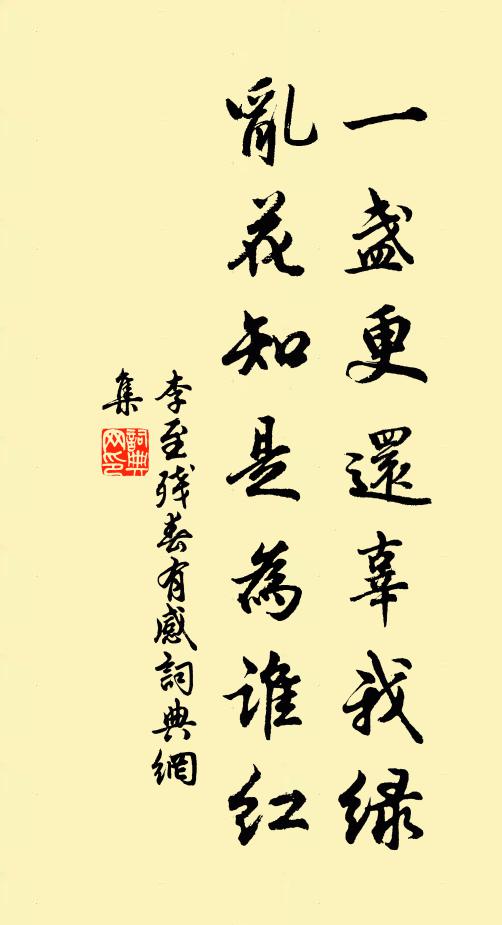 一盏更還辜我緑
亂花知是為谁紅
李至残春有感詞典網
集
詞典
网印